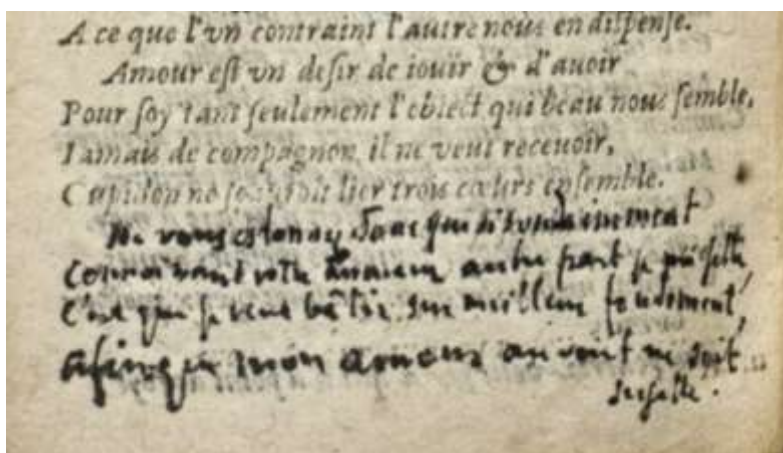 A ce que l'vn contraint l'autre nous en dispenſe.
Amour eſt vn deſir de iouïr & d'auoir
Pour ſoy tant ſeulement l'obiect qui beau nous ſemble,
Iamais de compagnon il ne veut receuoir,
Cupidon ne ſçauroit lier trois cœurs enſemble.
Ne vous estonney donc que si soudainement
Connoissant votre amour autre part je
C'est que je veus bâtir sur meilleur fondement,
afin que mon amour au vent ne soit